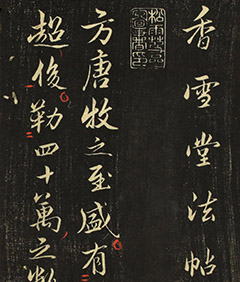 香雪堂法帖
方唐牧之至盛有
超俊勒四十萬之